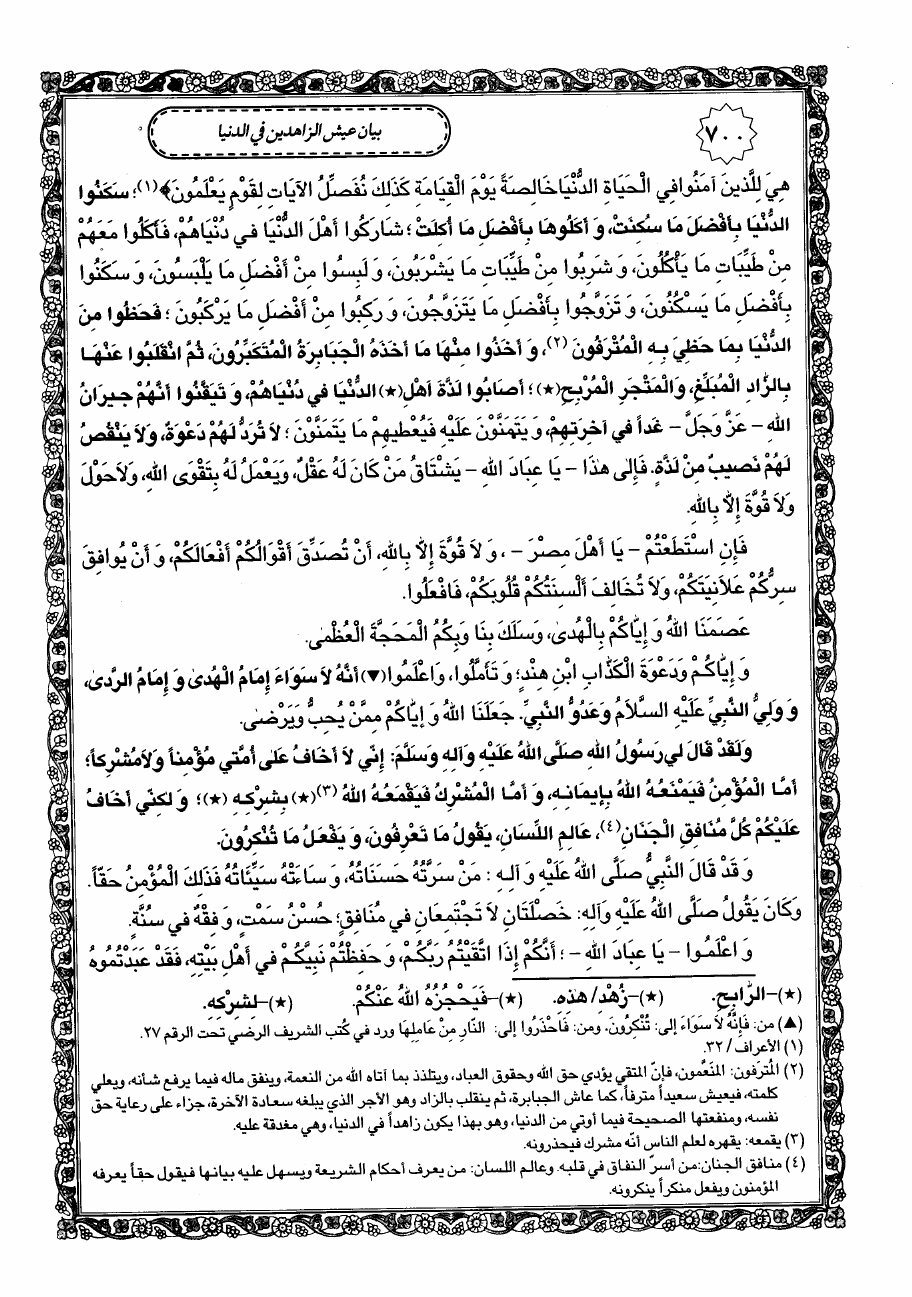 ٧٠٠
بيان عيش الزاهدين في الدنيا
هِيَ لِلَّذِينَ آمَنُوا فِي الْحَيَاةِ الدُّنْيَا خَالِصَةً يَوْمَ الْقِيَامَةِ كَذَلِكَ نُفَصِّلُ الآيَاتِ لِقَوْمٍ يَعْلَمُونَ﴾(١)؛ سَكَنُوا
الدُّنْيَا بِأَفْضَلِ مَا سُكِنَتْ، وَ أَكَلُوهَا بِأَفْضَلِ مَا أُكِلَتْ؛ شَارَكُوا أَهْلَ الدُّنْيَا في دُنْيَاهُمْ، فَأَكَلُوا مَعَهُمْ
مِنْ طَيِّبَاتِ مَا يَأْكُلُونَ، وَ شَرِبُوا مِنْ طَيِّبَاتِ مَا يَشْرَبُونَ، وَ لَبِسُوا مِنْ أَفْضَلِ مَا يَلْبَسُونَ، وَ سَكَنُوا
بِأَفْضَلِ مَا يَسْكُنُونَ، وَ تَزَوَّجُوا بِأَفْضَلِ مَا يَتَزَوَّجُونَ، وَ رَكِبُوا مِنْ أَفْضَلِ مَا يَرْكَبُونَ؛ فَحَظُوا مِنَ
الدُّنْيَا بِمَا حَظِيَ بِهِ الْمُتْرَفُونَ(٢)، وَ أَخَذُوا مِنْهَا مَا أَخَذَهُ الْجَبَابِرَةُ الْمُتَكَبِّرُونَ، ثُمَّ انْقَلَبُوا عَنْهَا
بِالزَّادِ الْمُبَلِّغِ، وَالْمَتْجَرِ الْمُرْبِحِ(★)؛ أَصَابُوا لَذَّةَ أَهْلِ(★) الدُّنْيَا في دُنْيَاهُمْ، وَ تَيَقَّنُوا أَنَّهُمْ جِيرَانُ
اللهِ - عَزَّ وَجَلَّ - غَداً في آخِرَتِهِمْ، وَ يَتَمَنَّوْنَ عَلَيْهِ فَيُعْطِيهِمْ مَا يَتَمَنَّوْنَ؛ لاَ تُرَدُّ لَهُمْ دَعْوَةٌ، وَلاَ يَنْقُصُ
لَهُمْ نَصِيبٌ مِنْ لَذَّةٍ. فَإِلى هٰذَا - يَا عِبَادَ اللهِ - يَشْتَاقُ مَنْ كَانَ لَهُ عَقْلٌ، وَيَعْمَلُ لَهُ بِتَقْوَى اللهِ، وَلاَ حَوْلَ
وَلاَ قُوَّةَ إِلاَّ بِاللهِ.
فَإِنِ اسْتَطَعْتُمْ - يَا أَهْلَ مِصْرَ -، وَ لاَ قُوَّةَ إِلاَّ بِاللهِ، أَنْ تُصَدِّقَ أَقْوَالُكُمْ أَفْعَالَكُمْ، وَ أَنْ يُوَافِقَ
سِرُّكُمْ عَلاَنِيَتَكُمْ، وَلاَ تُخَالِفَ أَلْسِنَتُكُمْ قُلُوبَكُمْ، فَافْعَلُوا.
عَصَمَنَا اللهُ وَ إِيَّاكُمْ بِالْهُدىٰ، وَسَلَكَ بِنَا وَبِكُمُ الْمَحَجَّةَ الْعُظْمٰى.
وَ إِيَّاكُمْ وَدَعْوَةَ الْكَذَّابِ ابْنِ هِنْدٍ؛ وَ تَأَمَّلُوا، وَاعْلَمُوا(▼) أَنَّهُ لاَ سَوَاءَ إِمَامُ الْهُدىٰ وَ إِمَامُ الرَّدىٰ،
وَ وَلِيُّ النَّبِيِّ عَلَيْهِ السَّلاَمُ وَعَدُوُّ النَّبِيِّ. جَعَلَنَا اللهُ وَ إِيَّاكُمْ مِمَّنْ يُحِبُّ وَيَرْضىٰ.
وَلَقَدْ قَالَ لي رَسُولُ اللهِ صَلَّى اللهُ عَلَيْهِ وَآلِهِ وَسَلَّمَ: إِنّي لاَ أَخَافُ عَلىٰ أُمَّتي مُؤْمِناً وَلاَ مُشْرِكاً؛
أَمَّا الْمُؤْمِنُ فَيَمْنَعُهُ اللهُ بِإِيمَانِهِ، وَ أَمَّا الْمُشْرِكُ فَيَقْمَعُهُ اللهُ(٣)(★) بِشِرْكِهِ(★)؛ وَ لٰكِنّي أَخَافُ
عَلَيْكُمْ كُلَّ مُنَافِقِ الْجَنَانِ(٤)، عَالِمِ اللِّسَانِ، يَقُولُ مَا تَعْرِفُونَ، وَ يَفْعَلُ مَا تُنْكِرُونَ.
وَ قَدْ قَالَ النَّبِيُّ صَلَّى اللهُ عَلَيْهِ وَ آلِهِ: مَنْ سَرَّتْهُ حَسَنَاتُهُ، وَ سَاءَتْهُ سَيِّئَاتُهُ فَذَلِكَ الْمُؤْمِنُ حَقّاً.
وَكَانَ يَقُولُ صَلَّى اللهُ عَلَيْهِ وَآلِهِ: خَصْلَتَانِ لاَ تَجْتَمِعَانِ في مُنَافِقٍ؛ حُسْنُ سَمْتٍ، وَ فِقْهٌ في سُنَّةٍ.
وَ اعْلَمُوا - يَا عِبَادَ اللهِ -؛ أَنَّكُمْ إِذَا اتَّقَيْتُمْ رَبَّكُمْ، وَ حَفِظْتُمْ نَبِيَّكُمْ في أَهْلِ بَيْتِهِ، فَقَدْ عَبَدْتُمُوهُ
(★)-الرَّابِحِ. (★)-زُهْدِ/هٰذِهِ. (★)-فَيَحْجُزُهُ اللهُ عَنْكُمْ. (★)-لِشِرْكِهِ.
(▲) من: فَإِنَّهُ لاَ سَوَاءَ إلى: تُنْكِرُونَ. ومن: فَاحْذَرُوا إلى: النَّارِ مِنْ عَامِلِهَا ورد في كُتب الشريف الرضي تحت الرقم ٢٧.
(١) الأعراف / ٣٢.
(٢) المُترفون: المنَعَّمون، فإنّ المتقي يؤدي حق الله وحقوق العباد، ويتلذذ بما آتاه الله من النعمة، وينفق ماله فيما يرفع شأنه، ويعلي
كلمته، فيعيش سعيداً مترفاً، كما عاش الجبابرة، ثم ينقلب بالزاد وهو الأجر الذي يبلغه سعادة الآخرة، جزاء على رعاية حق
نفسه، ومنفعتها الصحيحة فيما أوتي من الدنيا، وهو بهذا يكون زاهداً في الدنيا، وهي مغدقة عليه.
(٣) يقمعه: يقهره لعلم الناس أنّه مشرك فيحذرونه.
(٤) منافق الجنان: من أسرّ النفاق في قلبه. وعالم اللسان: من يعرف أحكام الشريعة ويسهل عليه بيانها فيقول حقاً يعرفه
المؤمنون ويفعل منكراً ينكرونه.